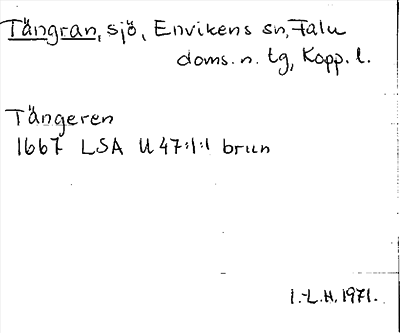 Tängran, sjö, Envikens sn, Falu
doms. n. tg, Kopp. l.
Tängeren
1667 LSA U 47:1:1 brun
I.-L.H. 1971.